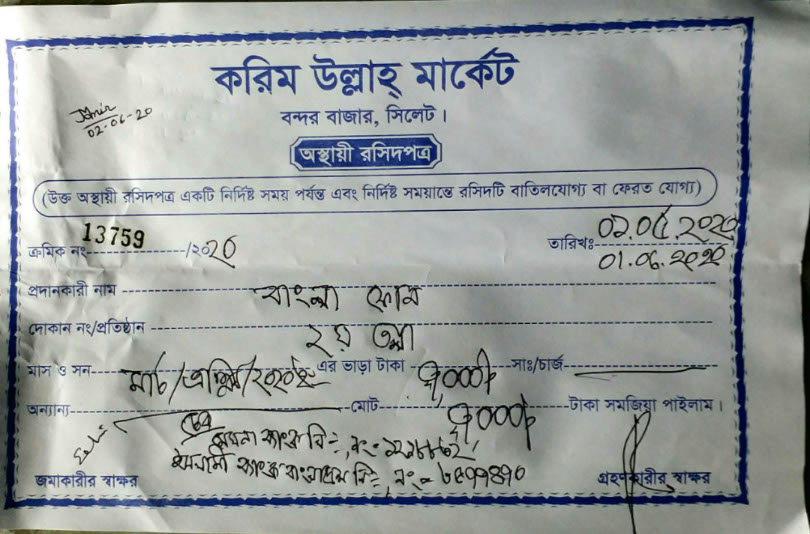 করিম উল্লাহ্ মার্কেট
বন্দর বাজার, সিলেট।
02-06-20
অস্থায়ী রসিদপত্র
(উক্ত অস্থায়ী রসিদপত্র একটি নির্দিষ্ট সময় পর্যন্ত এবং নির্দিষ্ট সময়ান্তে রসিদটি বাতিলযোগ্য বা ফেরত যোগ্য)
ক্রমিক নং 13759 /২০২০ তারিখঃ
01.06.২০২০
প্রদানকারী নাম বাংলা ফোন
দোকান নং/প্রতিষ্ঠান ২য় তলা
মাস ও সন মার্চ/এপ্রিল/২০২০ এর ভাড়া টাকা ৭,০০০/- সাঃ/চার্জ
অন্যান্য মোট ৭,০০০/- টাকা সমজিয়া পাইলাম।
জমাকারীর স্বাক্ষর গ্রহণকারীর স্বাক্ষর